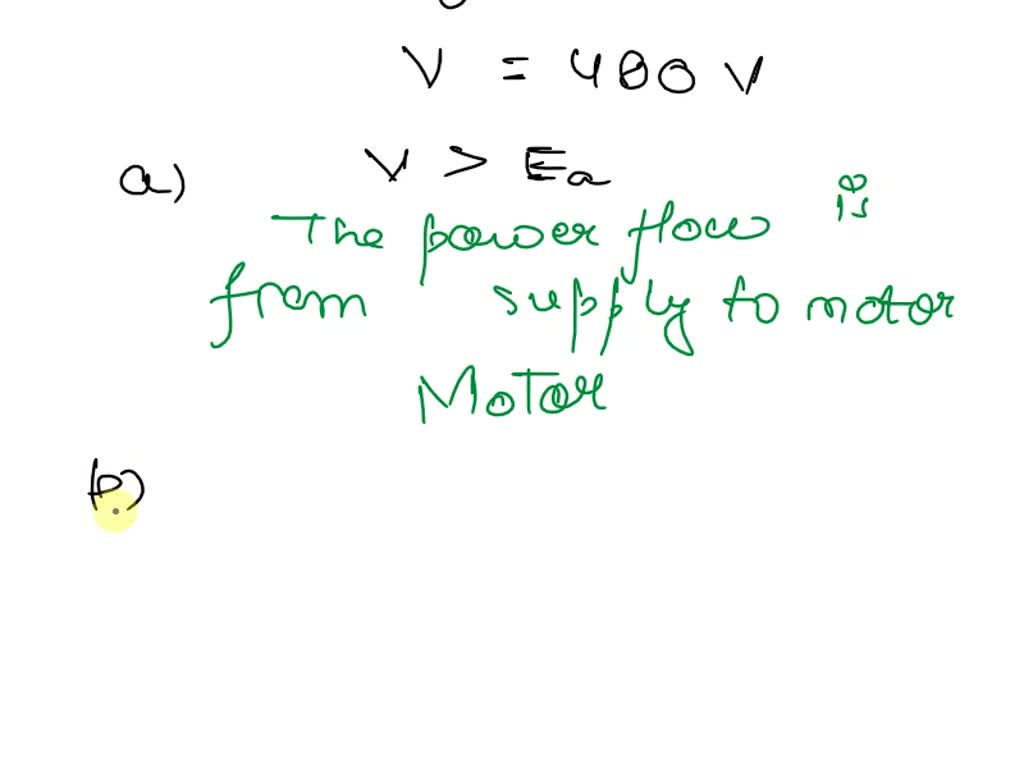 V = 400 V
a) V > Ea
The power flow is
from supply to motor
Motor
b)